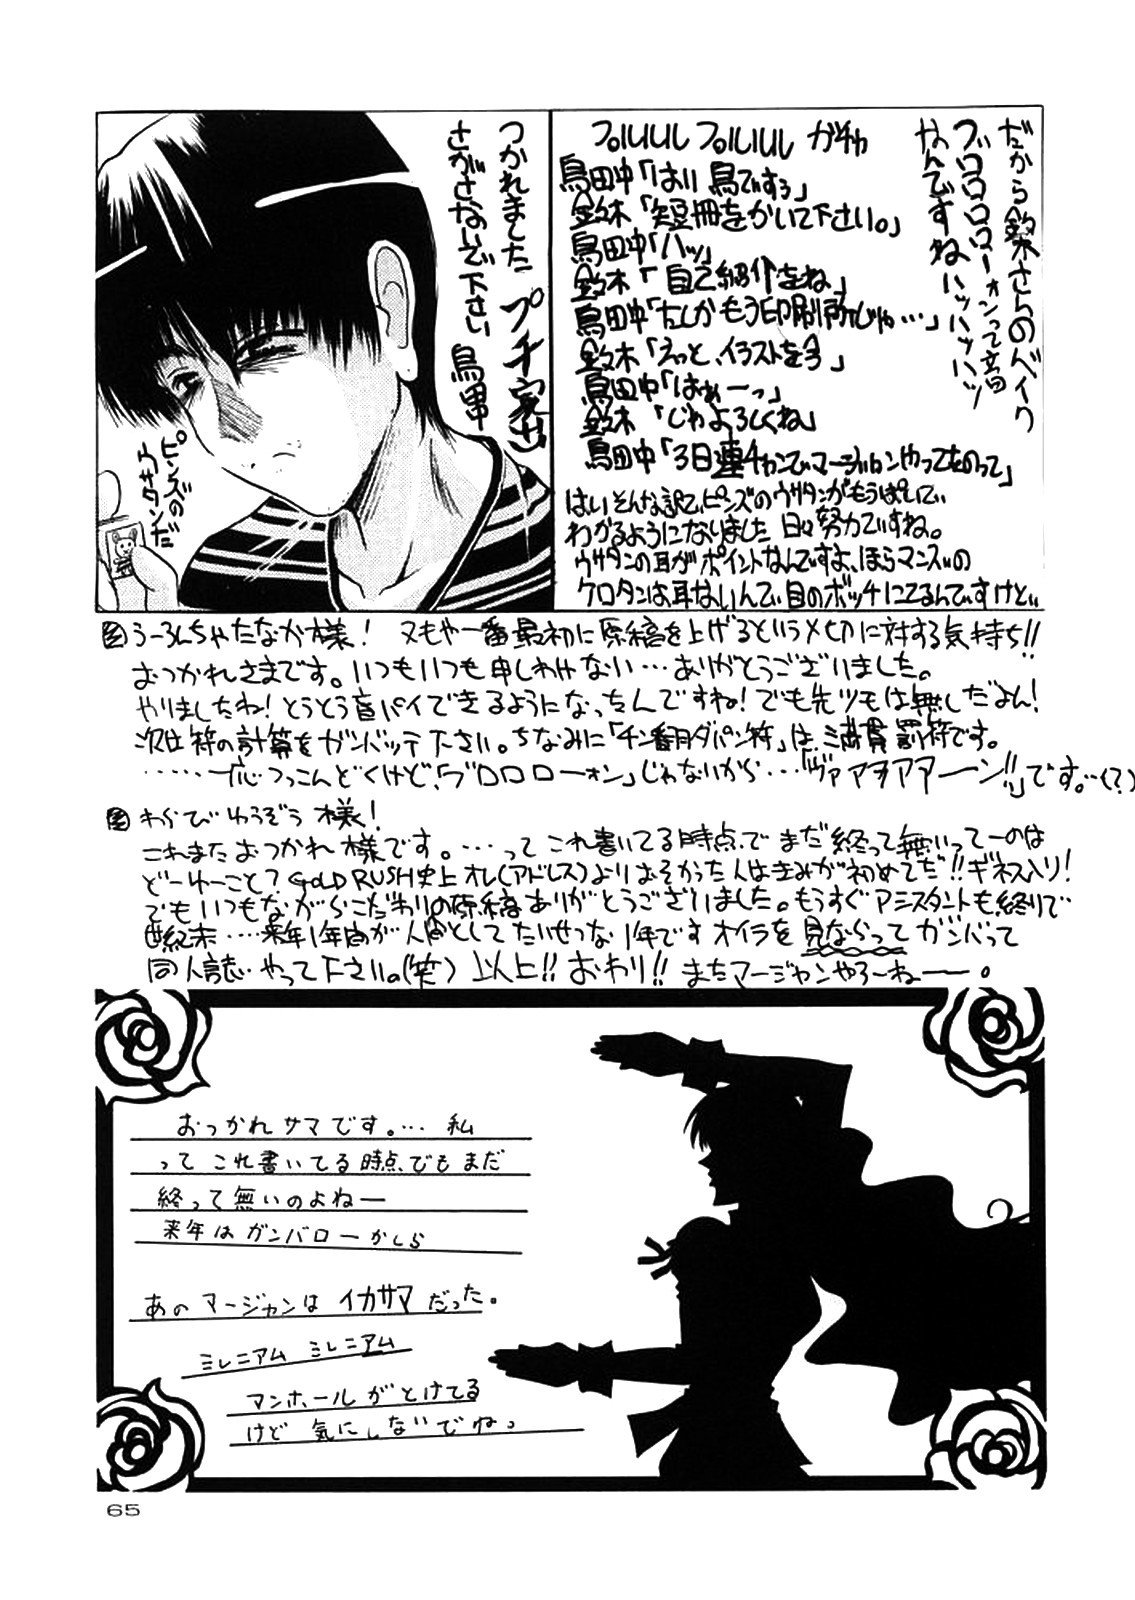 だから鈴木さんのバイク
ブロロロローォンって音
なんですねハッハッハッ
プルルルル プルルルル ガチャ
鳥田中「はい 鳥ですう」
鈴木「短冊をかいて下さい。」
鳥田中「ハッ」
鈴木「自己紹介をね」
鳥田中「たしかもう印刷所じゃ…」
鈴木「えっと、イラストを今」
鳥田中「はぁーっ」
鈴木「じゃよろしくね」
鳥田中「3日連チャンでマージャンやってたのって」
はいそんな訳でピンズのウサタンがもうぱいで
わかるようになりました 日々努力ですね。
ウサタンの耳がポイントなんですよ、ほらマンズの
ケロタンは耳ないんで目のボッチにてるんですけど
つかれました プチ家出
さがさないで下さい 鳥田中
ピンズの
ウサタンだ
うーろんちゃたなか様! 又もや一番最初に原稿を上げるという〆切に対する気持ち!!
おつかれさまです。いつもいつも申しわけない…ありがとうございました。
やりましたね!とうとう盲パイできるようになったんですね!でも先ツモは無しだよん!
次は符の計算をガンバッテ下さい。ちなみに「チン番月ダパン符」は、満貫罰符です。
……一応つっこんどくけど、「ブロロローォン」じゃないから…「ヴァアヲアアーン!!」です。…(?)
わらびゆうぞう 様!
これまたおつかれ様です。…ってこれ書いてる時点でまだ終って無いってーのは
どーゆーこと?GOLD RUSH史上オレ(アドレス)よりおそかった人はきみが初めてだ!!ギネス入り!
でもいつもながらこだわりの原稿ありがとうございました。もうすぐアシスタントも終りで
世紀末…来年1年間が人間としてたいせつな1年ですオイラを見ならってガンバって
同人誌やって下さい。(笑) 以上!! おわり!! またマージャンやろーねー。
おつかれサマです。… 私
ってこれ書いてる時点でもまだ
終って無いのよねー
来年はガンバローかしら
あのマージャンはイカサマだった。
ミレニアム ミレニアム
マンホールがとけてる
けど気にしないでねっ
65